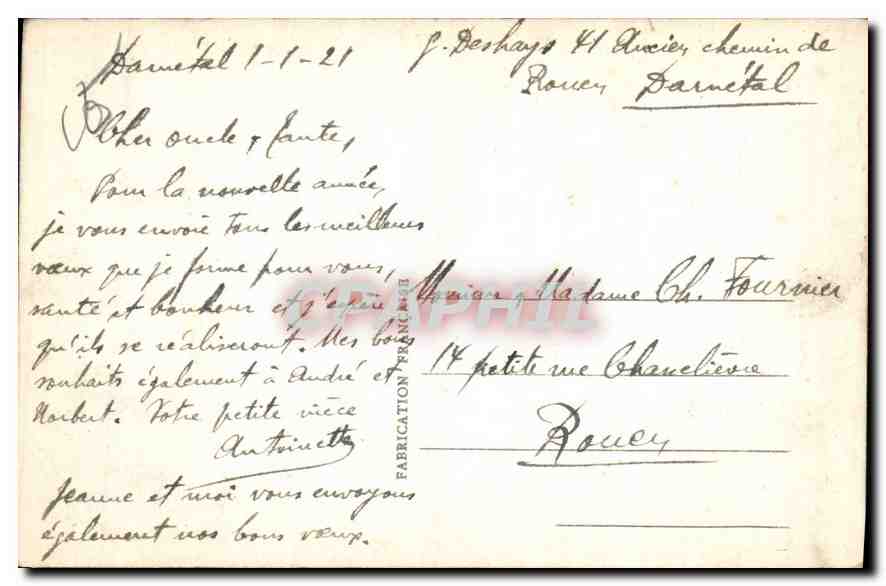 Darnétal 1-1-21
G. Deshays 41 Ancien chemin de
Rouen Darnétal
Cher oncle & tante,
Pour la nouvelle année,
je vous envoie tous les meilleurs
vœux que je forme pour vous,
santé et bonheur et j'espère
qu'ils se réaliseront. Mes bons
souhaits également à André et
Norbert. Votre petite nièce
Antoinette
Jeanne et moi vous envoyons
également nos bons vœux.
FABRICATION FRANÇAISE
CPAPHIL
Madame Ch. Fournier
14 petite rue
Rouen